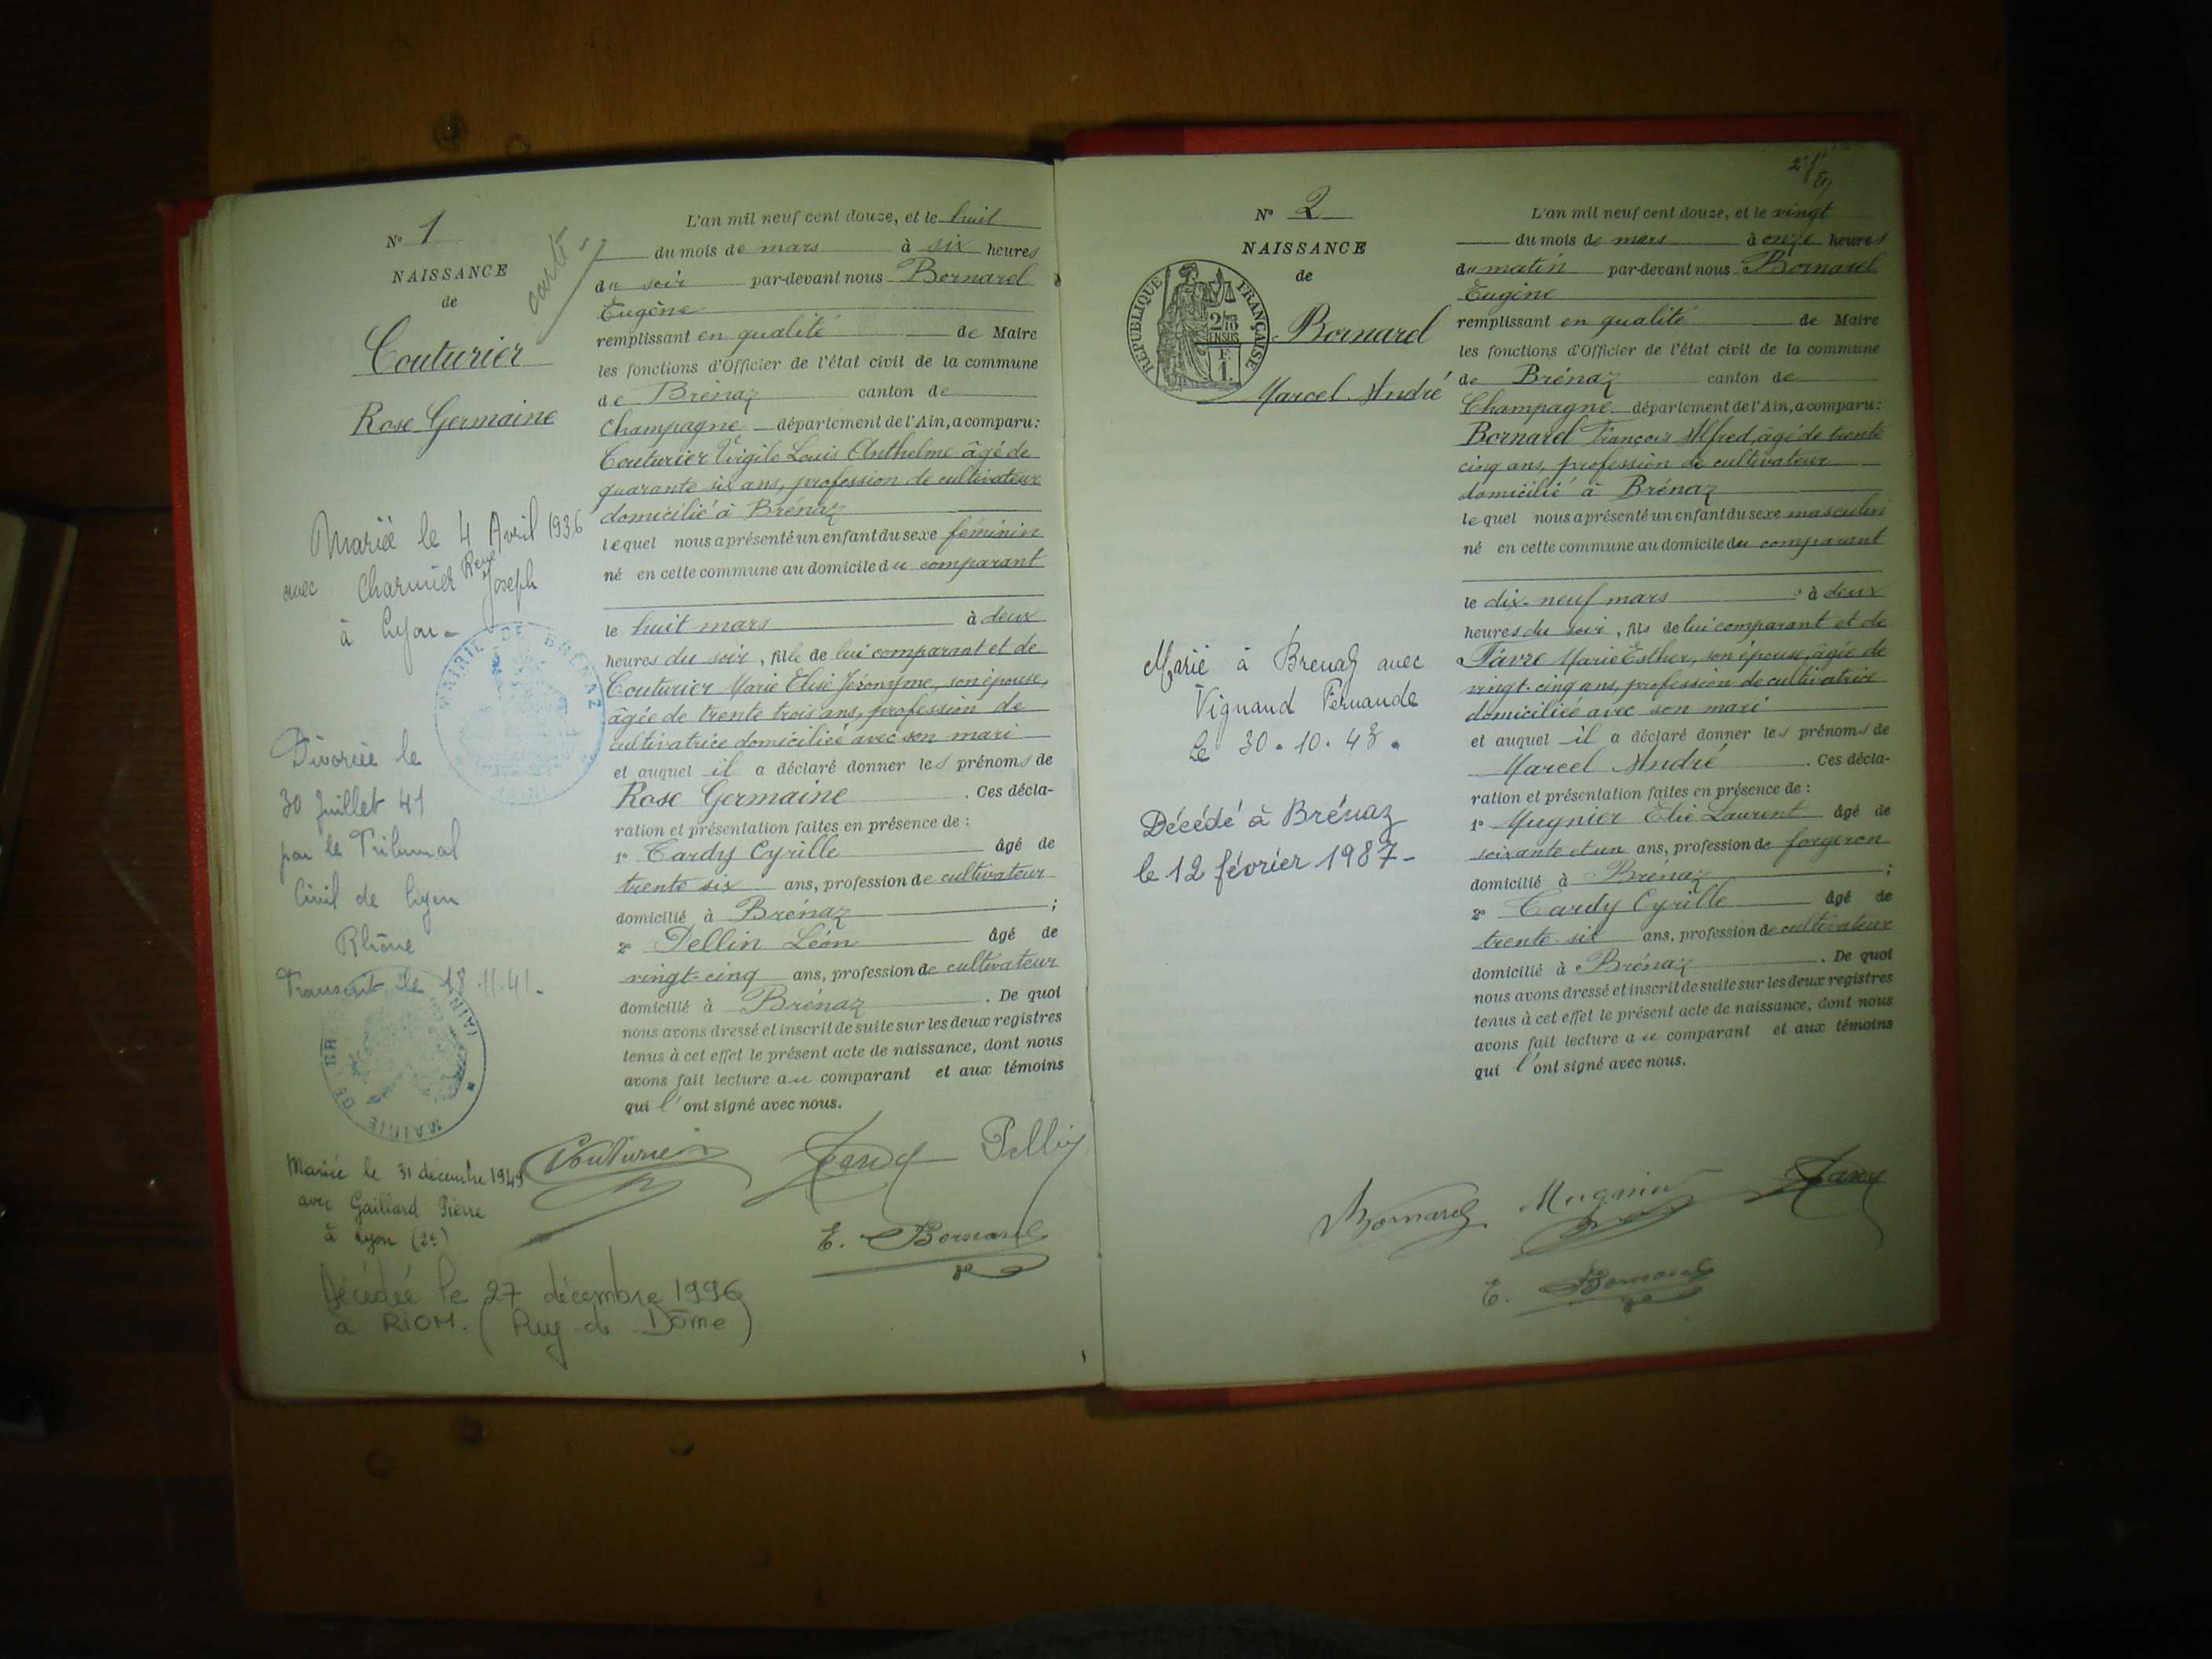 N° 1
NAISSANCE
de
Couturier
Rose Germaine
carte
Mariée le 4 Avril 1936
avec Charmier René Joseph
à Lyon -
MAIRIE DE BRENAZ
(AIN)
Divorcée le
30 Juillet 41
par le Tribunal
Civil de Lyon
Rhône
Transcrit le 18.11.41.
MAIRIE DE BR
(AIN)
Mariée le 31 décembre 1949
avec Gaillard Pierre
à Lyon (2e)
Décédée le 27 décembre 1996
à RIOM. (Puy-de-Dôme)
L'an mil neuf cent douze, et le huit
du mois de mars à six heures
du soir par-devant nous Bornarel
Eugène
remplissant en qualité de Maire
les fonctions d'Officier de l'état civil de la commune
de Brénaz canton de
Champagne département de l'Ain, a comparu:
Couturier Virgile Louis Anthelme âgé de
quarante six ans, profession de cultivateur
domicilié à Brénaz
lequel nous a présenté un enfant du sexe féminin
né en cette commune au domicile du comparant
le huit mars à deux
heures du soir, fille de lui comparant et de
Couturier Marie Elise Jéronyme, son épouse,
âgée de trente trois ans, profession de
cultivatrice domiciliée avec son mari
et auquel il a déclaré donner les prénoms de
Rose Germaine . Ces décla-
ration et présentation faites en présence de :
1° Tardy Cyrille âgé de
trente six ans, profession de cultivateur
domicilié à Brénaz ;
2° Pellin Léon âgé de
vingt-cinq ans, profession de cultivateur
domicilié à Brénaz . De quoi
nous avons dressé et inscrit de suite sur les deux registres
tenus à cet effet le présent acte de naissance, dont nous
avons fait lecture au comparant et aux témoins
qui l'ont signé avec nous.
Couturier Tardy Pellin
E. Bornarel
N° 2
NAISSANCE
de
REPUBLIQUE FRANÇAISE
2/10 EN SUS
F.
1.
Bornarel
Marcel André
Marié à Brenaz avec
Vignand Fernande
le 30.10.48.
Décédé à Brénaz
le 12 février 1987-
L'an mil neuf cent douze, et le vingt
du mois de mars à onze heures
du matin par-devant nous Bornarel
Eugène
remplissant en qualité de Maire
les fonctions d'Officier de l'état civil de la commune
de Brénaz canton de
Champagne département de l'Ain, a comparu:
Bornarel François Alfred, âgé de trente
cinq ans, profession de cultivateur
domicilié à Brénaz
lequel nous a présenté un enfant du sexe masculin
né en cette commune au domicile du comparant
le dix-neuf mars à deux
heures du soir, fils de lui comparant et de
Favre Marie Esther, son épouse, âgée de
vingt-cinq ans, profession de cultivatrice
domiciliée avec son mari
et auquel il a déclaré donner les prénoms de
Marcel André . Ces décla-
ration et présentation faites en présence de :
1° Mugnier Elie Laurent âgé de
soixante et un ans, profession de forgeron
domicilié à Brénaz ;
2° Tardy Cyrille âgé de
trente-six ans, profession de cultivateur
domicilié à Brénaz . De quoi
nous avons dressé et inscrit de suite sur les deux registres
tenus à cet effet le présent acte de naissance, dont nous
avons fait lecture au comparant et aux témoins
qui l'ont signé avec nous.
Bornarel Mugnier Tardy
E. Bornarel